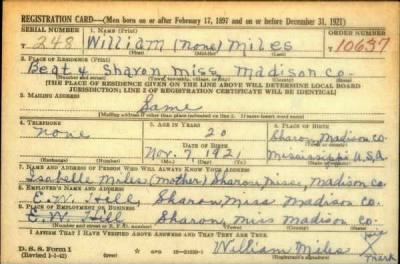 REGISTRATION CARD—(Men born on or after February 17, 1897 and on or before December 31, 1921)
SERIAL NUMBER 1. NAME (Print) ORDER NUMBER
T 248 William (none) Miles T10657
(First) (Middle) (Last)
2. PLACE OF RESIDENCE (Print)
Beat 4 Sharon, Miss, Madison Co.
(Number and street) (Town, township, village, or city) (County) (State)
[THE PLACE OF RESIDENCE GIVEN ON THE LINE ABOVE WILL DETERMINE LOCAL BOARD
JURISDICTION; LINE 2 OF REGISTRATION CERTIFICATE WILL BE IDENTICAL]
3. MAILING ADDRESS
Same
[Mailing address if other than place indicated on line 2. If same insert word same]
4. TELEPHONE 5. AGE IN YEARS 6. PLACE OF BIRTH
none 20 Sharon, Madison Co
DATE OF BIRTH
Nov. 7 1921 Mississippi U.S.A
(Exchange) (Number) (Mo.) (Day) (Yr.) (State or country)
7. NAME AND ADDRESS OF PERSON WHO WILL ALWAYS KNOW YOUR ADDRESS
Isabelle Miles (mother) Sharon, Miss, Madison Co.
8. EMPLOYER'S NAME AND ADDRESS
E. W. Hill, Sharon, Miss Madison Co.
9. PLACE OF EMPLOYMENT OR BUSINESS
E. W. Hill Sharon, Miss Madison Co.
(Number and street or R. F. D. number) (Town) (County) (State)
I AFFIRM THAT I HAVE VERIFIED ABOVE ANSWERS AND THAT THEY ARE TRUE.
D. S. S. Form 1 William Miles
(Revised 1-1-42) (Registrant's signature)
mark